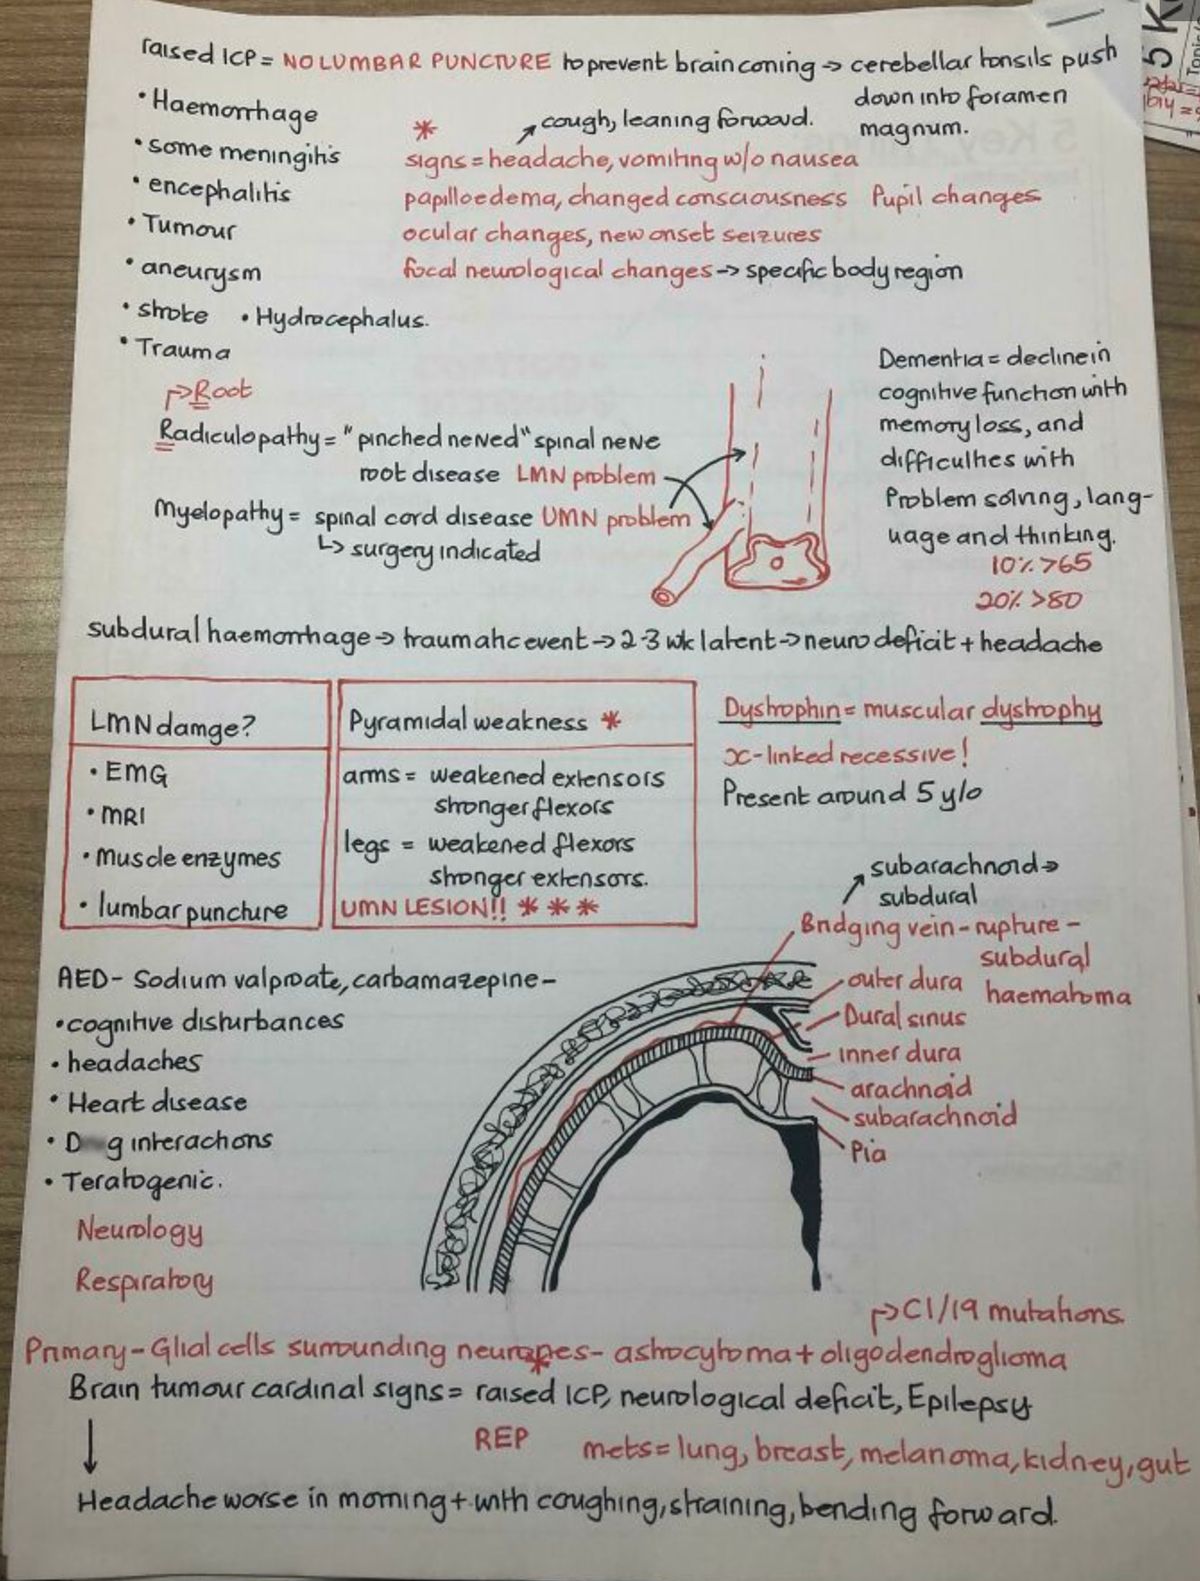 raised ICP = NO LUMBAR PUNCTURE to prevent brain coning → cerebellar tonsils push
down into foramen
magnum.
• Haemorrhage
• some meningitis
• encephalitis
• Tumour
• aneurysm
• stroke • Hydrocephalus.
• Trauma
* ↗ cough, leaning forward.
signs = headache, vomiting w/o nausea
papilloedema, changed consciousness Pupil changes
ocular changes, new onset seizures
focal neurological changes → specific body region
↱ Root
Radiculopathy = "pinched nerved" spinal nerve
root disease LMN problem
Myelopathy = spinal cord disease UMN problem
↳ surgery indicated
Dementia = decline in
cognitive function with
memory loss, and
difficulties with
Problem solving, lang-
uage and thinking.
10% >65
20% >80
subdural haemorrhage → traumatic event → 2-3 wk latent → neuro deficit + headache
LMN damge?
• EMG
• MRI
• Muscle enzymes
• lumbar puncture
Pyramidal weakness *
arms = weakened extensors
stronger flexors
legs = weakened flexors
stronger extensors.
UMN LESION!! * * *
Dystrophin = muscular dystrophy
x-linked recessive!
Present around 5 y/o
AED - Sodium valproate, carbamazepine -
• cognitive disturbances
• headaches
• Heart disease
• D g interactions
• Teratogenic.
Neurology
Respiratory
↗ subarachnoid →
subdural
Bridging vein - rupture -
subdural
haematoma
outer dura
Dural sinus
inner dura
arachnoid
subarachnoid
Pia
↱ C1/19 mutations.
Primary - Glial cells surrounding neurones - astrocytoma + oligodendroglioma
Brain tumour cardinal signs = raised ICP, neurological deficit, Epilepsy
REP mets = lung, breast, melanoma, kidney, gut
↓
Headache worse in morning + with coughing, straining, bending forward.
5 K